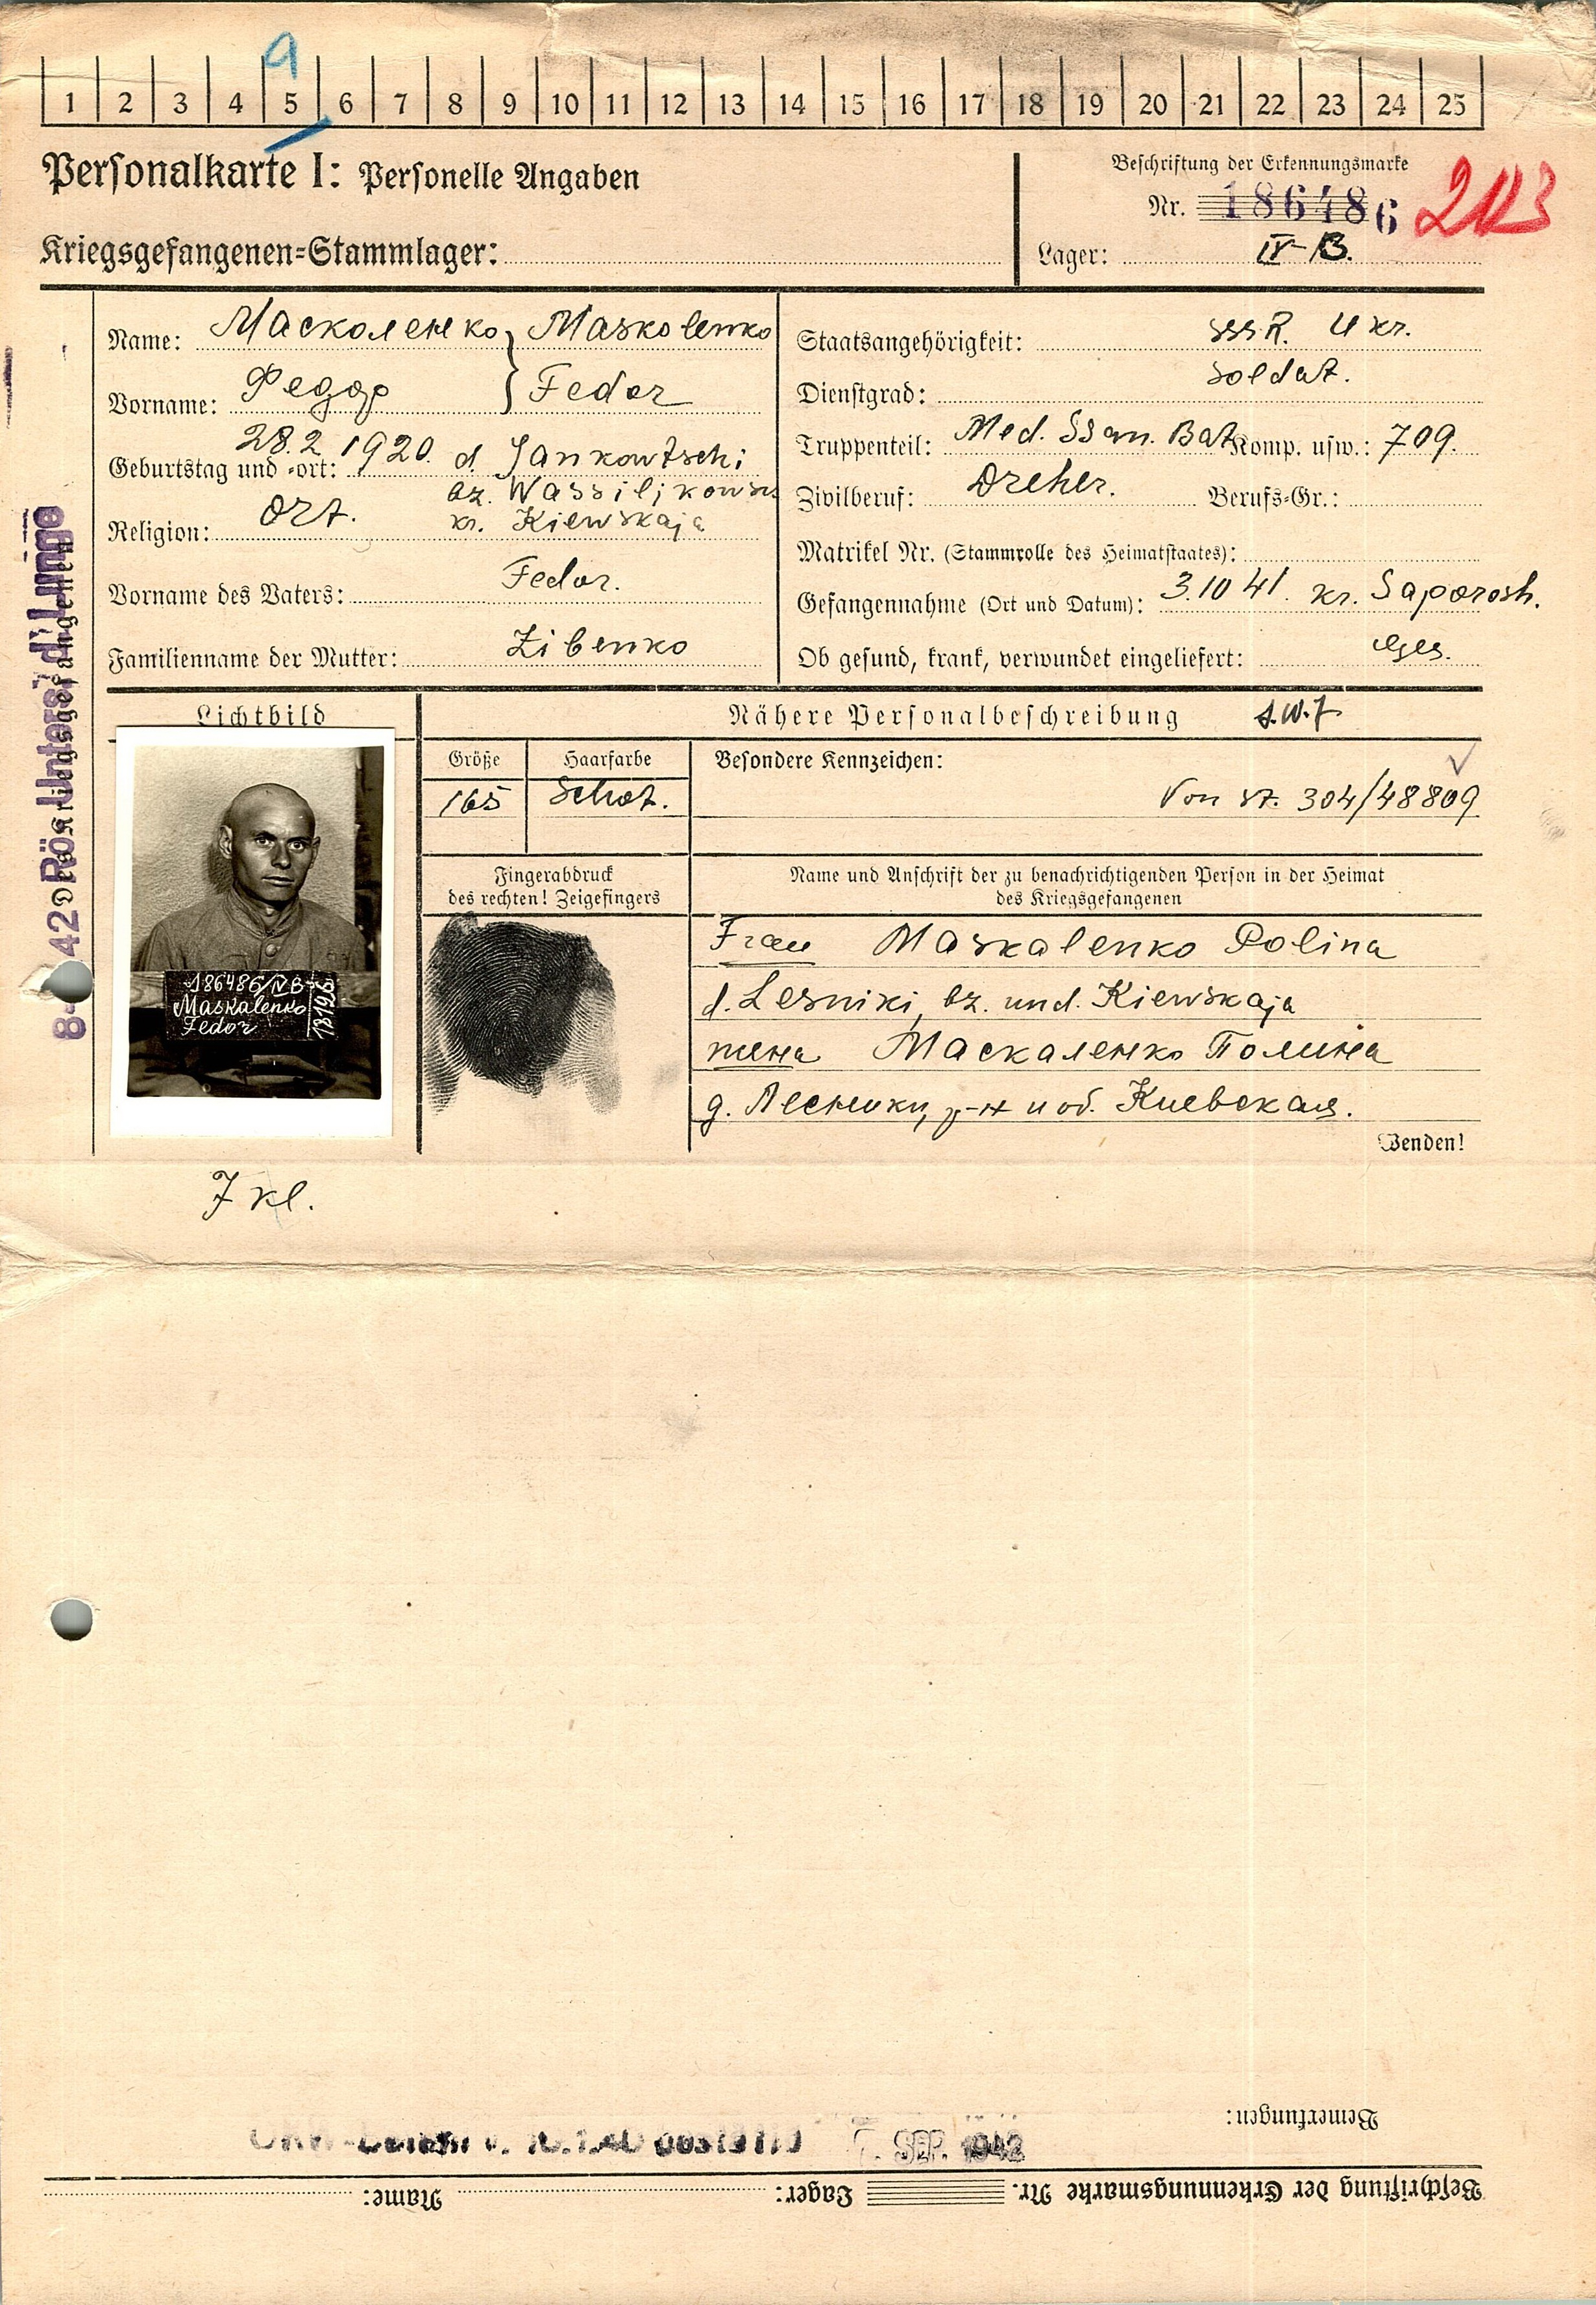 9
1 2 3 4 5 6 7 8 9 10 11 12 13 14 15 16 17 18 19 20 21 22 23 24 25
Personalkarte I: Personelle Angaben
Beschriftung der Erkennungsmarke
Nr. 186486
Kriegsgefangenen-Stammlager:
Lager: IV-B.
Name: Масколенко Maskolenko
Vorname: Федор Fedor
Geburtstag und -ort: 28.2 1920. d. Jankowtschi
bz. Wassiljkowsk
Religion: Ort. kr. Kiewskaja
Vorname des Vaters: Fedor.
Familienname der Mutter: Zibenko
Staatsangehörigkeit: SSSR. Ukr.
Dienstgrad: Soldat.
Truppenteil: Med. Ssan. Bat Komp. usw.: 709.
Zivilberuf: Dreher. Berufs-Gr.:
Matrikel Nr. (Stammrolle des Heimatstaates):
Gefangennahme (Ort und Datum): 3.10 41. kr. Saporosh.
Ob gesund, krank, verwundet eingeliefert: Ges.
des Kriegsgefangenen
42 Rö. Unters. d. Lunge
Lichtbild
Nähere Personalbeschreibung
Größe
165
Haarfarbe
Besondere Kennzeichen:
Von St. 304/48809
186486/IV B
Maskalenko
Fedor
Fingerabdruck
des rechten! Zeigefingers
Name und Anschrift der zu benachrichtigenden Person in der Heimat
des Kriegsgefangenen
Frau Maskalenko Polina
d. Lesniki, bz. und. Kiewskaja
жена Маскаленко Полина
д. Лесники, р-н и об. Киевская.
Wenden!
7 kl.
Bemerkungen:
7. SEP. 1942
Beschriftung der Erkennungsmarke Nr. Lager: Name: